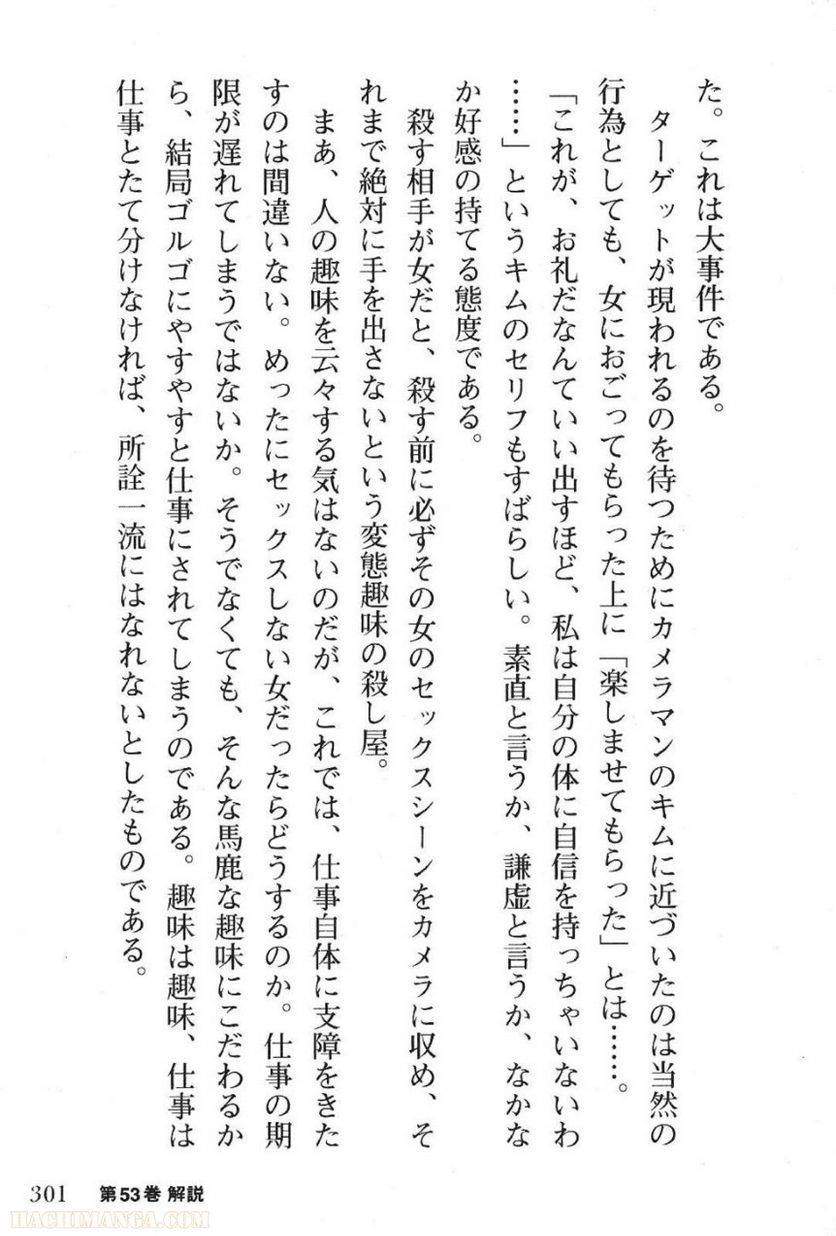 た。これは大事件である。
　ターゲットが現われるのを待つためにカメラマンのキムに近づいたのは当然の
行為としても、女におごってもらった上に「楽しませてもらった」とは……。
「これが、お礼だなんていい出すほど、私は自分の体に自信を持っちゃいないわ
……」というキムのセリフもすばらしい。素直と言うか、謙虚と言うか、なかな
か好感の持てる態度である。
　殺す相手が女だと、殺す前に必ずその女のセックスシーンをカメラに収め、そ
れまで絶対に手を出さないという変態趣味の殺し屋。
　まあ、人の趣味を云々する気はないのだが、これでは、仕事自体に支障をきた
すのは間違いない。めったにセックスしない女だったらどうするのか。仕事の期
限が遅れてしまうではないか。そうでなくても、そんな馬鹿な趣味にこだわるか
ら、結局ゴルゴにやすやすと仕事にされてしまうのである。趣味は趣味、仕事は
仕事とたて分けなければ、所詮一流にはなれないとしたものである。
301 第53巻 解説
HACHIMANGA.COM